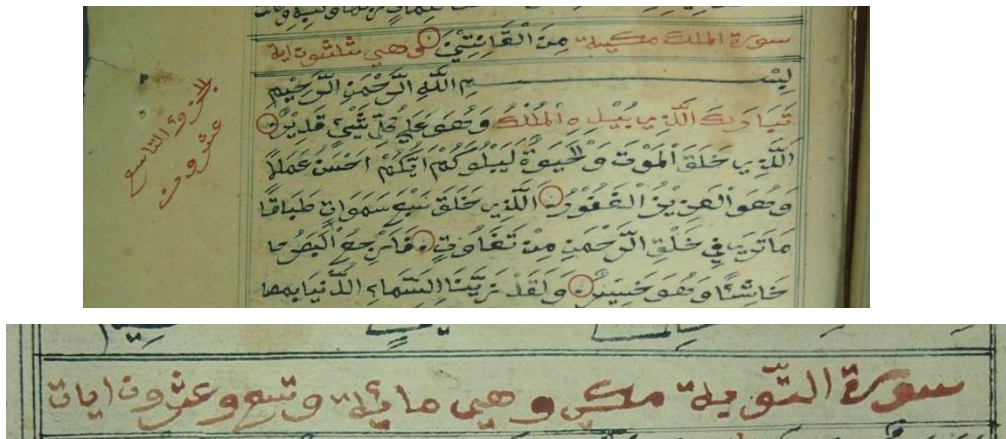 سورة الملك مكية مِنَ الْقَانِتِيْنَ وهي ثلثون اية
بِسْــــــمِ اللهِ الرَّحْمٰنِ الرَّحِيْمِ
تَبَارَكَ الَّذِي بِيَدِهِ الْمُلْكُ وَهُوَ عَلٰى كُلِّ شَيْئٍ قَدِيْرٌ
الَّذِي خَلَقَ الْمَوْتَ وَالْحَيٰوةَ لِيَبْلُوَكُمْ اَيُّكُمْ اَحْسَنُ عَمَلًا
وَهُوَ الْعَزِيْزُ الْغَفُوْرُ الَّذِي خَلَقَ سَبْعَ سَمَوَاتٍ طِبَاقًا
مَا تَرٰى فِي خَلْقِ الرَّحْمٰنِ مِنْ تَفَاوُتٍ فَارْجِعِ الْبَصَرَ
خَاسِئًا وَهُوَ حَسِيْرٌ وَلَقَدْ زَيَّنَّا السَّمَاءَ الدُّنْيَا بِمَصَا
الجزؤ التاسع
عشرون
سورة التّوبة مكي وهي مائة وتسع وعشرون ايات